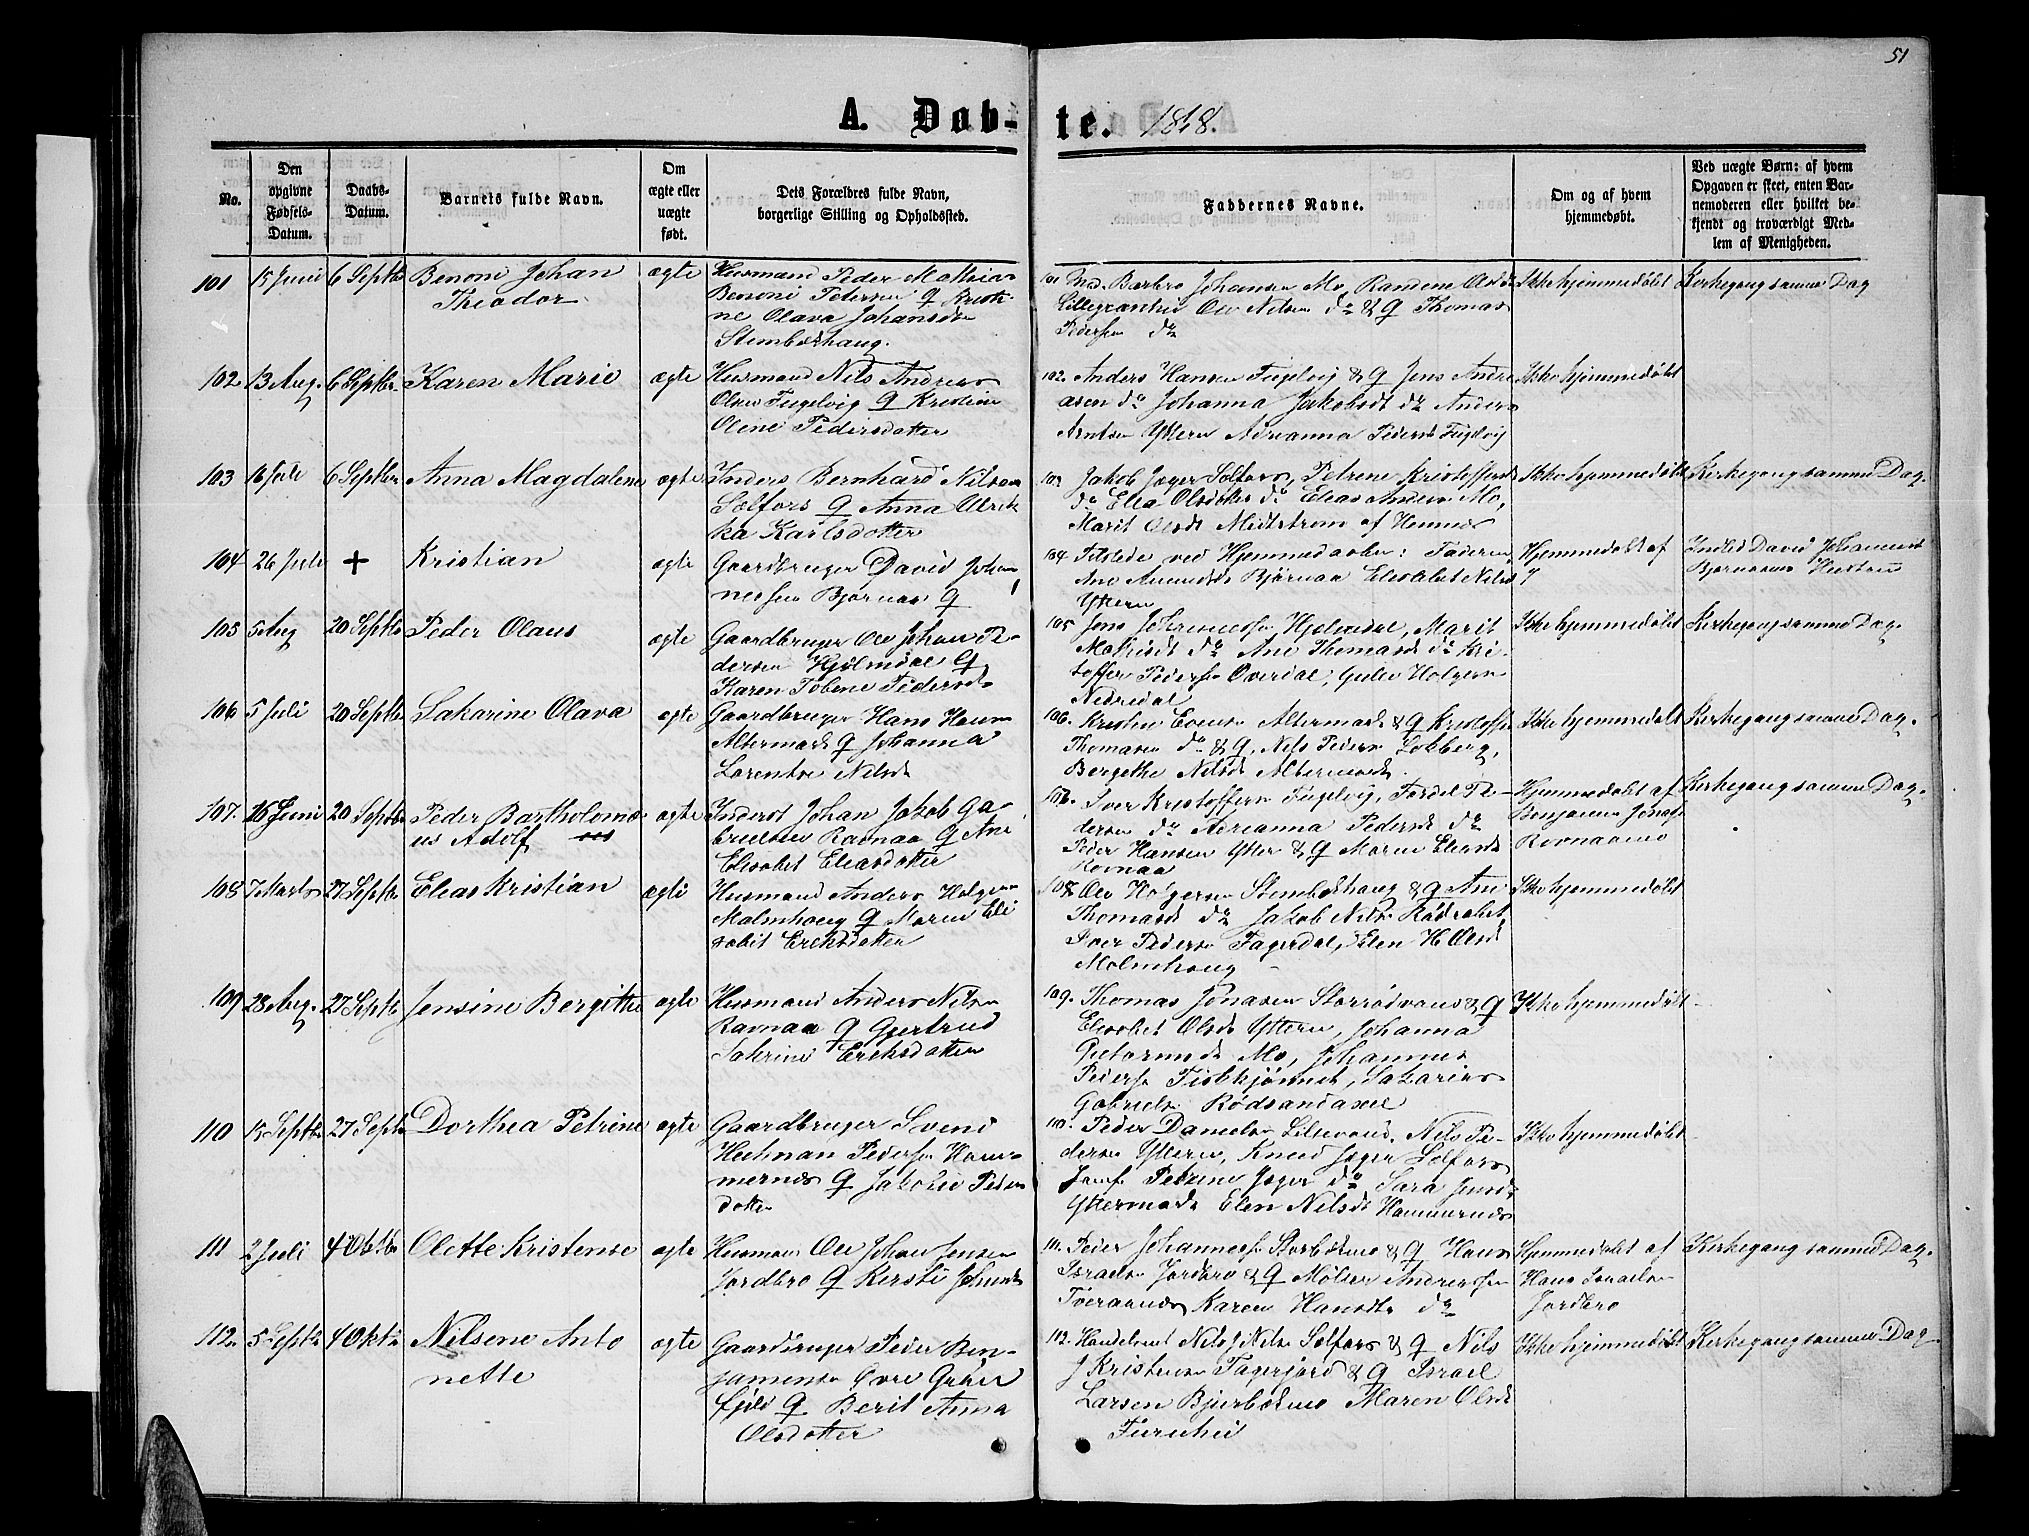 51
A. Døb-te. 1868.
No.
Den opgivne Fødsels-Datum.
Daabs-Datum.
Barnets fulde Navn.
Om ægte eller uægte født.
Dets Forældres fulde Navn, borgerlige Stilling og Opholdssted.
Faddernes Navne.
Om og af hvem hjemmedøbt.
Ved uægte Børn: af hvem Opgaven er skeet, enten Barnemoderen eller hvilket bekjendt og troværdigt Medlem af Menigheden.
101 15 Juni 6 Septbr Benoni Johan ægte Husmand Peder Mathias
Theodor Benoni Petersen & Kristi
ne Olava Johansdtr
Stenbækhaug.
101 Barbro Johansen Mo,
Ole Nilsen do & Q Thomas
Pedersen do
Ikke hjemmedøbt Kirkegang samme Dag
102. 13 Aug. 6 Septbr. Karen Marie ægte Husmand Nils Andreas
Olsen Fugelvig Q Kristine
Olene Pedersdatter
102. Anders Hansen Fugelvig & Q Jens Andre
asen do Johanna Jakobsdt do Anders
Arntsen Yttern Adrianna Pedersd Fugelvig
Ikke hjemmedøbt
103 16 Juli 6 Septbr Anna Magdalene ægte Inders Bernhard Nilsen
Selfors Q Anna Ulrik
ka Karlsdatter
103 Jakob Jæger Selfors, Petrene Kristoffersd
do Elia Olsdatter do Elias Andersen Mo,
Marit Olsdt Midtstrøm af Hemnes
Ikke hjemmedøbt Kirkegang samme Dag.
104 26 Juli + Kristian ægte Gaardbruger David Johan
nessen Bjørnaa Q
104 Tilstede ved Hjemmedaaben: Faderen
Ane Amundsd Bjørnaa Elisabet Nilsd
Yttern
Hjemmedøbt af
Indled David Johannes
105 5 Aug 20 Septbr Peder Olaus ægte Gaardbruger Ole Johan Pe-
dersen Hjelmdal Q
Karen Tobene Pedersd
105 Jens Johannessen Hjelmdal, Marit
Mathisdt do Ane Thomasd do Kri-
stoffer Pedersen Overdal, Julie Holgersen
Nedredal
Ikke hjemmedøbt Kirkegang samme Dag.
106 5 Juli 20 Septbr Sakarine Olava ægte Gaardbruger Hans Hansen
Altermark Q Johanna
Lorentse Nilsdt
106. Kristen Evensen Altermark & Q Kristoffer
Thomasen do & Q, Nils Pedersen Lokberg,
Bergethe Nilsdt Altermark.
Ikke hjemmedøbt Kirkegang samme Dag.
107. 16 Juni 20 Septbr Peder Bartholomæ ægte Inderst Johan Jakob Ga-
us Adolf brielsen Ravnaa Q Ane
Elisabet Eliasdatter
107. Iver Kristoffersen Fugelvig, Fordel Pe-
dersen do Adrianna Pedersdt do
Peder Hansen Ytter & Q Maren Eliasdt
Ravnaa
Hjemmedøbt af Kirkegang samme Dag
Benjamin Jonas
Ravnaamo
108 7 Marts 27 Septbr Elias Kristian ægte Husmand Anders Holgersen
Malmhaug Q Maren Eli
sabet Eriksdatter
108 Ole Holgersen Stenbækhaug & Q Ane
Thomasdt do Jakob Nilsen Rødsølet,
Iver Pedersen Fagerdal, Elen H Olsdt
Malmhaug
Ikke hjemmedøbt
109 28 Aug. 27 Septbr Jensine Bergitte ægte Husmand Anders Nilsen
Ravnaa Q Gjertrud
Sahrine Eriksdatter
109. Thomas Jonasen Storrødvand & Q
Elisabet Olsdt Yttern, Johanna
Mo, Johannes
Pedersen Fiskkjønnet, Sakarias
Gabrielsen Rødsandaxel
Ikke hjemmedøbt
110 13 Septbr 27 Septbr Dorthea Petrine ægte Gaardbruger Svend
Heitman Pedersen Ham-
mernes Q Jakobie Peders
datter
110. Peder Danielsen Lillevand, Nils Pe-
dersen Yttern, Knud Jæger Selfors
Jomf Petrine Jæger do Sara Jensdt
Yttermark Elen Nilsdt Hammernes
Ikke hjemmedøbt
111 2 Juli 4 Oktbr Olette Kristense ægte Husmand Ole Johan Jensen
Jordbro Q Kersti Johansdt
111. Peder Johannessen Storbækmo & Q Hans
Israelsen Jordbro & Q Andreassen
Tveraanes Karen Hansdtr do
Hjemmedøbt af Kirkegang samme Dag.
Hans Israelsen
Jordbro
112. 5 Septbr 4 Oktbr Nilsene Anto ægte Gaardbruger Peder Ben-
nette jaminsen Øvre Grøn
fjeld Q Berit Anna
Olsdatter
112. Handelsmd Nils J Nilsen Selfors & Q Nils
J Kristensen Fagerjord & Q Israel
Larsen Bjurbækmo Maren Olsdt
Furuhei
Ikke hjemmedøbt Kirkegang samme Dag